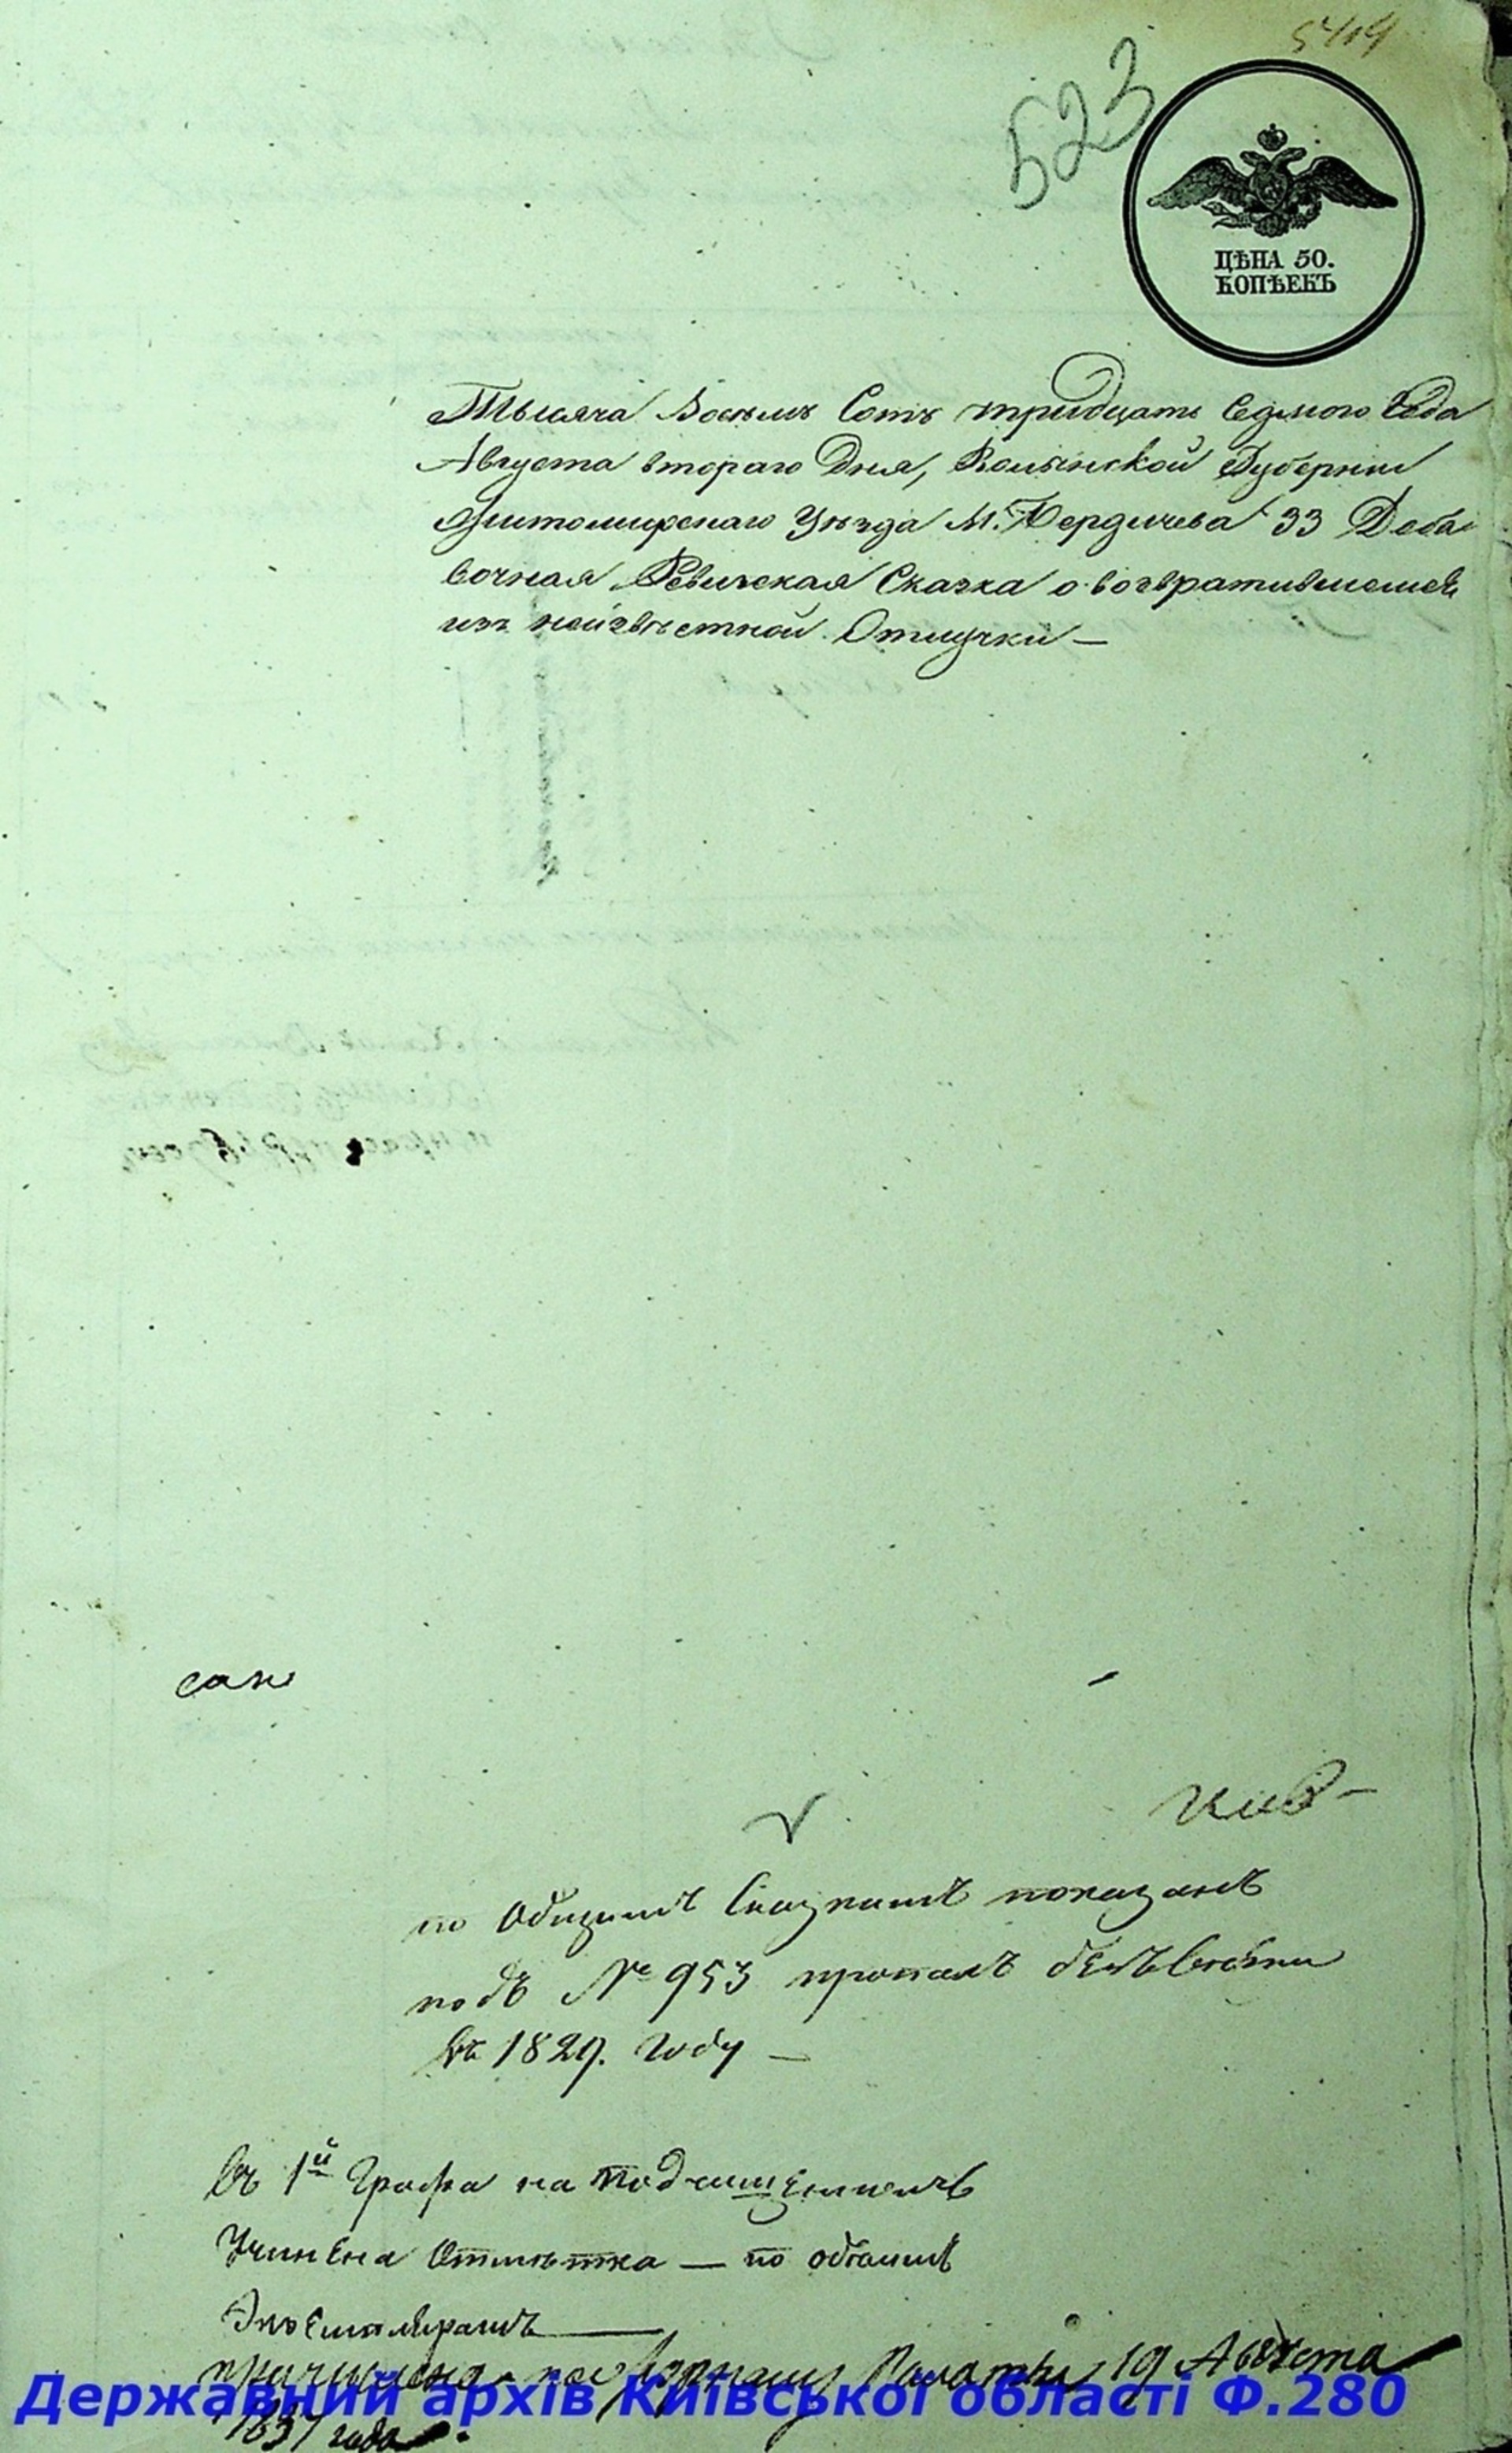 5414
523
ЦѢНА 50.
КОПѢЕКЪ
Тысяча Восемъ Сотъ тридцать Седмого Года
Августа втораго Дня, Волынской Губернии
Житомирскаго Уѣзда М. Бердичева 33 Доба
вочная Ревизская Сказка о возвратившемся
изъ неизвѣстной Отлучки —
по Общимъ Сказкамъ показанъ
подъ № 953 пропалъ безъ вести
въ 1829. Году —
въ 1й Графа на подлинномъ
Учинена Отмѣтка — по обоимъ
Экземплярамъ
причислена по Палаты 19 Августа
1837 года.
Державний архів Київської області Ф.280